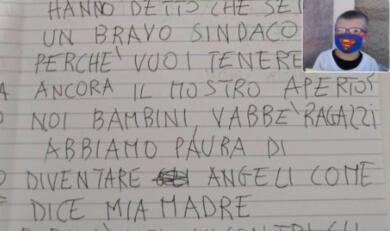 HANNO DETTO CHE SEI
UN BRAVO SINDACO
PERCHÈ VUOI TENERE
A ANCORA IL MOSTRO APERTO?
O NOI BAMBINI, VABBÈ RAGAZZI
ABBIAMO PAURA DI
DIVENTARE ANGELI COME
DICE MIA MADRE